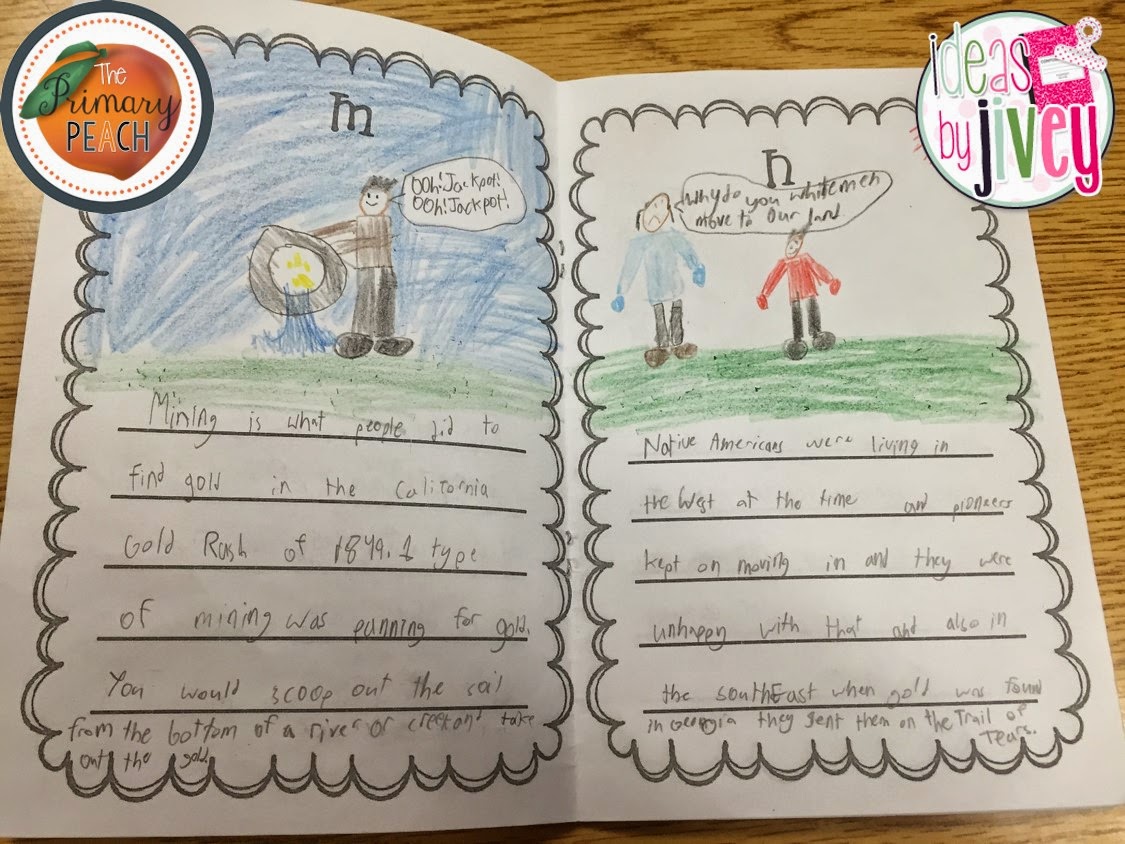 The
Primary
PEACH
m
OOh! Jackpot!
OOh! Jackpot!
Mining is what people did to
find gold in the California
Gold Rush of 1849. 1 type
of mining was panning for gold.
You would scoop out the soil
from the bottom of a river or creek and take
out the gold.
ideas
by jivey
n
Why do you whitemen
move to Our land
Native Americans were living in
the West at the time and pioneers
kept on moving in and they were
unhappy with that and also in
the southEast when gold was found
in Georgia they sent them on the Trail of
Tears.